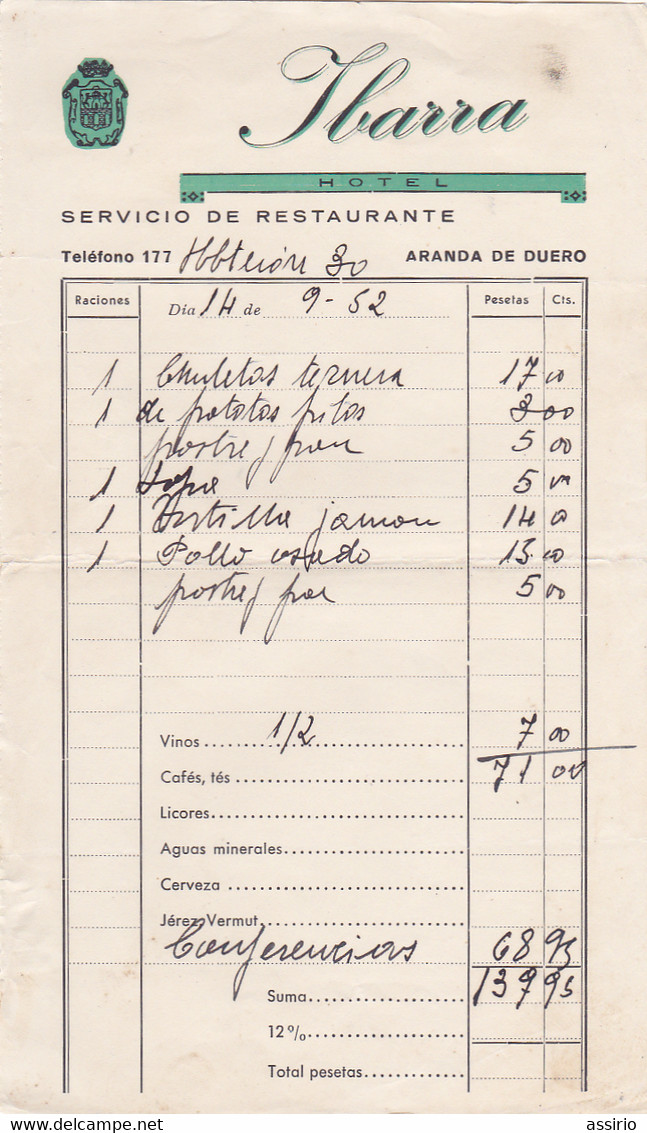 Ibarra
HOTEL
SERVICIO DE RESTAURANTE
Teléfono 177 Hbtción 30 ARANDA DE DUERO
Raciones Día 14 de 9-52 Pesetas Cts.
1 Chuletas ternera 17 00
1 de patatas fritas 3 00
postre y pan 5 00
1 Sopa 5 00
1 Tortilla jamon 14 00
1 Pollo asado 15 00
postre y pan 5 00
Vinos 1/2 7 00
Cafés, tés 71 00
Licores
Aguas minerales
Cerveza
Jérez Vermut
Conferencias 68 95
Suma 139 95
12%
Total pesetas
assirio